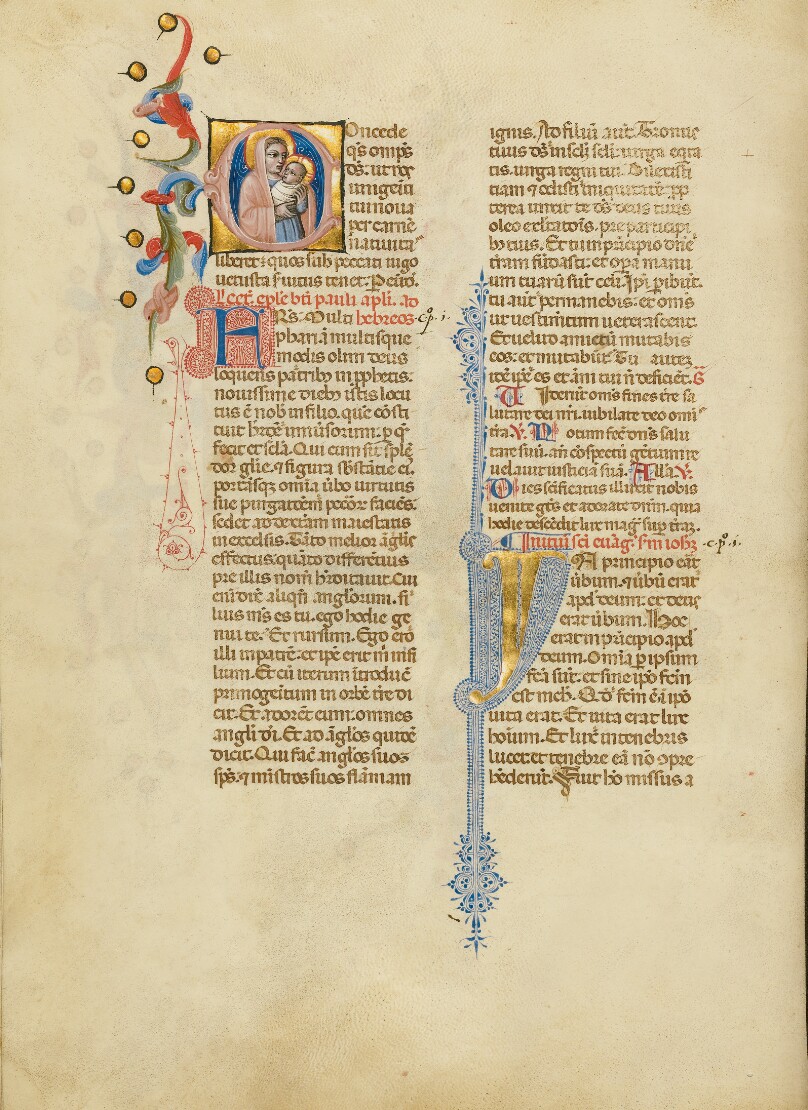 Oncede
q̄s om̄ps
ds̄. ut nos
unigeiti
tui noua
per carnē
natiuita⸗
liberet: quos sub peccati iugo
uetusta s̄uitus tenet. Per
Lect. epl̄e bt̄i pauli apl̄i. ad
FRs̄. Multi hebreos. c̄p̄. i.
phariā multisque
modis olim deus
loquens pātribꝫ in ꝓphetis:
nouissime diebꝫ istis locu
tus ē nob̄ in filio. quē cōsti
tuit h̄edē uniūsorum. ꝑ q̄
fecit et sc̄la. Qui cum sit splē
dor glīe. ⁊ figura sb̄stātie ei.
portāsqꝫ omīa ūbo uirtutis
sue purgatōem pecc̄oꝝ faciēs:
sedet ad dextām maiestatis
in excelsis. Tāto melior āglis
effectus: quāto differētius
pre illis nom̄ h̄editauit. Cui
eni dix̄ aliqn̄ anglorum. fi
lius m̄s es tu. ego hodie ge
nui te. Et rursum. Ego ero
illi in patrē: et ip̄e erit m̄ in fi
lium. Et cū iterum ītroduc̄
primogeītum in orbē tr̄e di
cit. Et adorēt eum: omnes
angli di. Et ad āglos quidē
dicit. Qui fac̄ anglos suos
sp̄s. ⁊ mīstros suos flāmam
ignis. Ad filiū aut̄. Tronus
tuus ds̄ in sc̄li sc̄li: uirga eqta
tis. uirga regni tui. Dilexisti
tiam ⁊ odisti iniquitatē: ꝓp
terea unxit te ds̄ deus tuus
oleo exltatōis. pre participi
bꝫ tuis. Et tu in principio dn̄e
tr̄am fūdasti: et oꝑa manu
um tuarū sūt celi. Ipi ꝑibūt.
tu aut̄ permanebis: et om̄s
ut uestim̄tum ueterascent.
Et uelud amictū mutabis
eos: et mutabūt̄. Tu autem
idē ip̄e es et āni tui nō deficiēt. G
Viderūt omīs fines tr̄e sa
lutare dei nr̄i. iubilate deo omī⸗
tr̄a. ℣. Notum fec̄ dn̄s salu
tare suū. an̄ cōspectū gētium re
uelauit iusticiā suā. All̄a ℣.
Dies sc̄ificatus illuxit nobis
uenite gn̄s et adorate dn̄m. quia
hodie descēdit lux mag̃ suꝑ tr̄az.
Initiū sc̄i euāg. sm̄ ioh̄ꝫ. c̄p̄. i.
IN principio erāt
ūbum. ⁊ ūbū erat
apd̄ deum. et deus
erat ūbum. Hoc
erat in prīcipio apd̄
deum. Omīa ꝑ ipsum
fc̄a sūt. et sine ip̄o fc̄m
est nich̄. Qd̄ fc̄m ē ī ip̄o
uita erat. Et uita erat lux
hoīum. Et lux̄ in tenebris
lucet: et tenebre eā nō ꝯpre
hēderūt. Fuit hō missus a